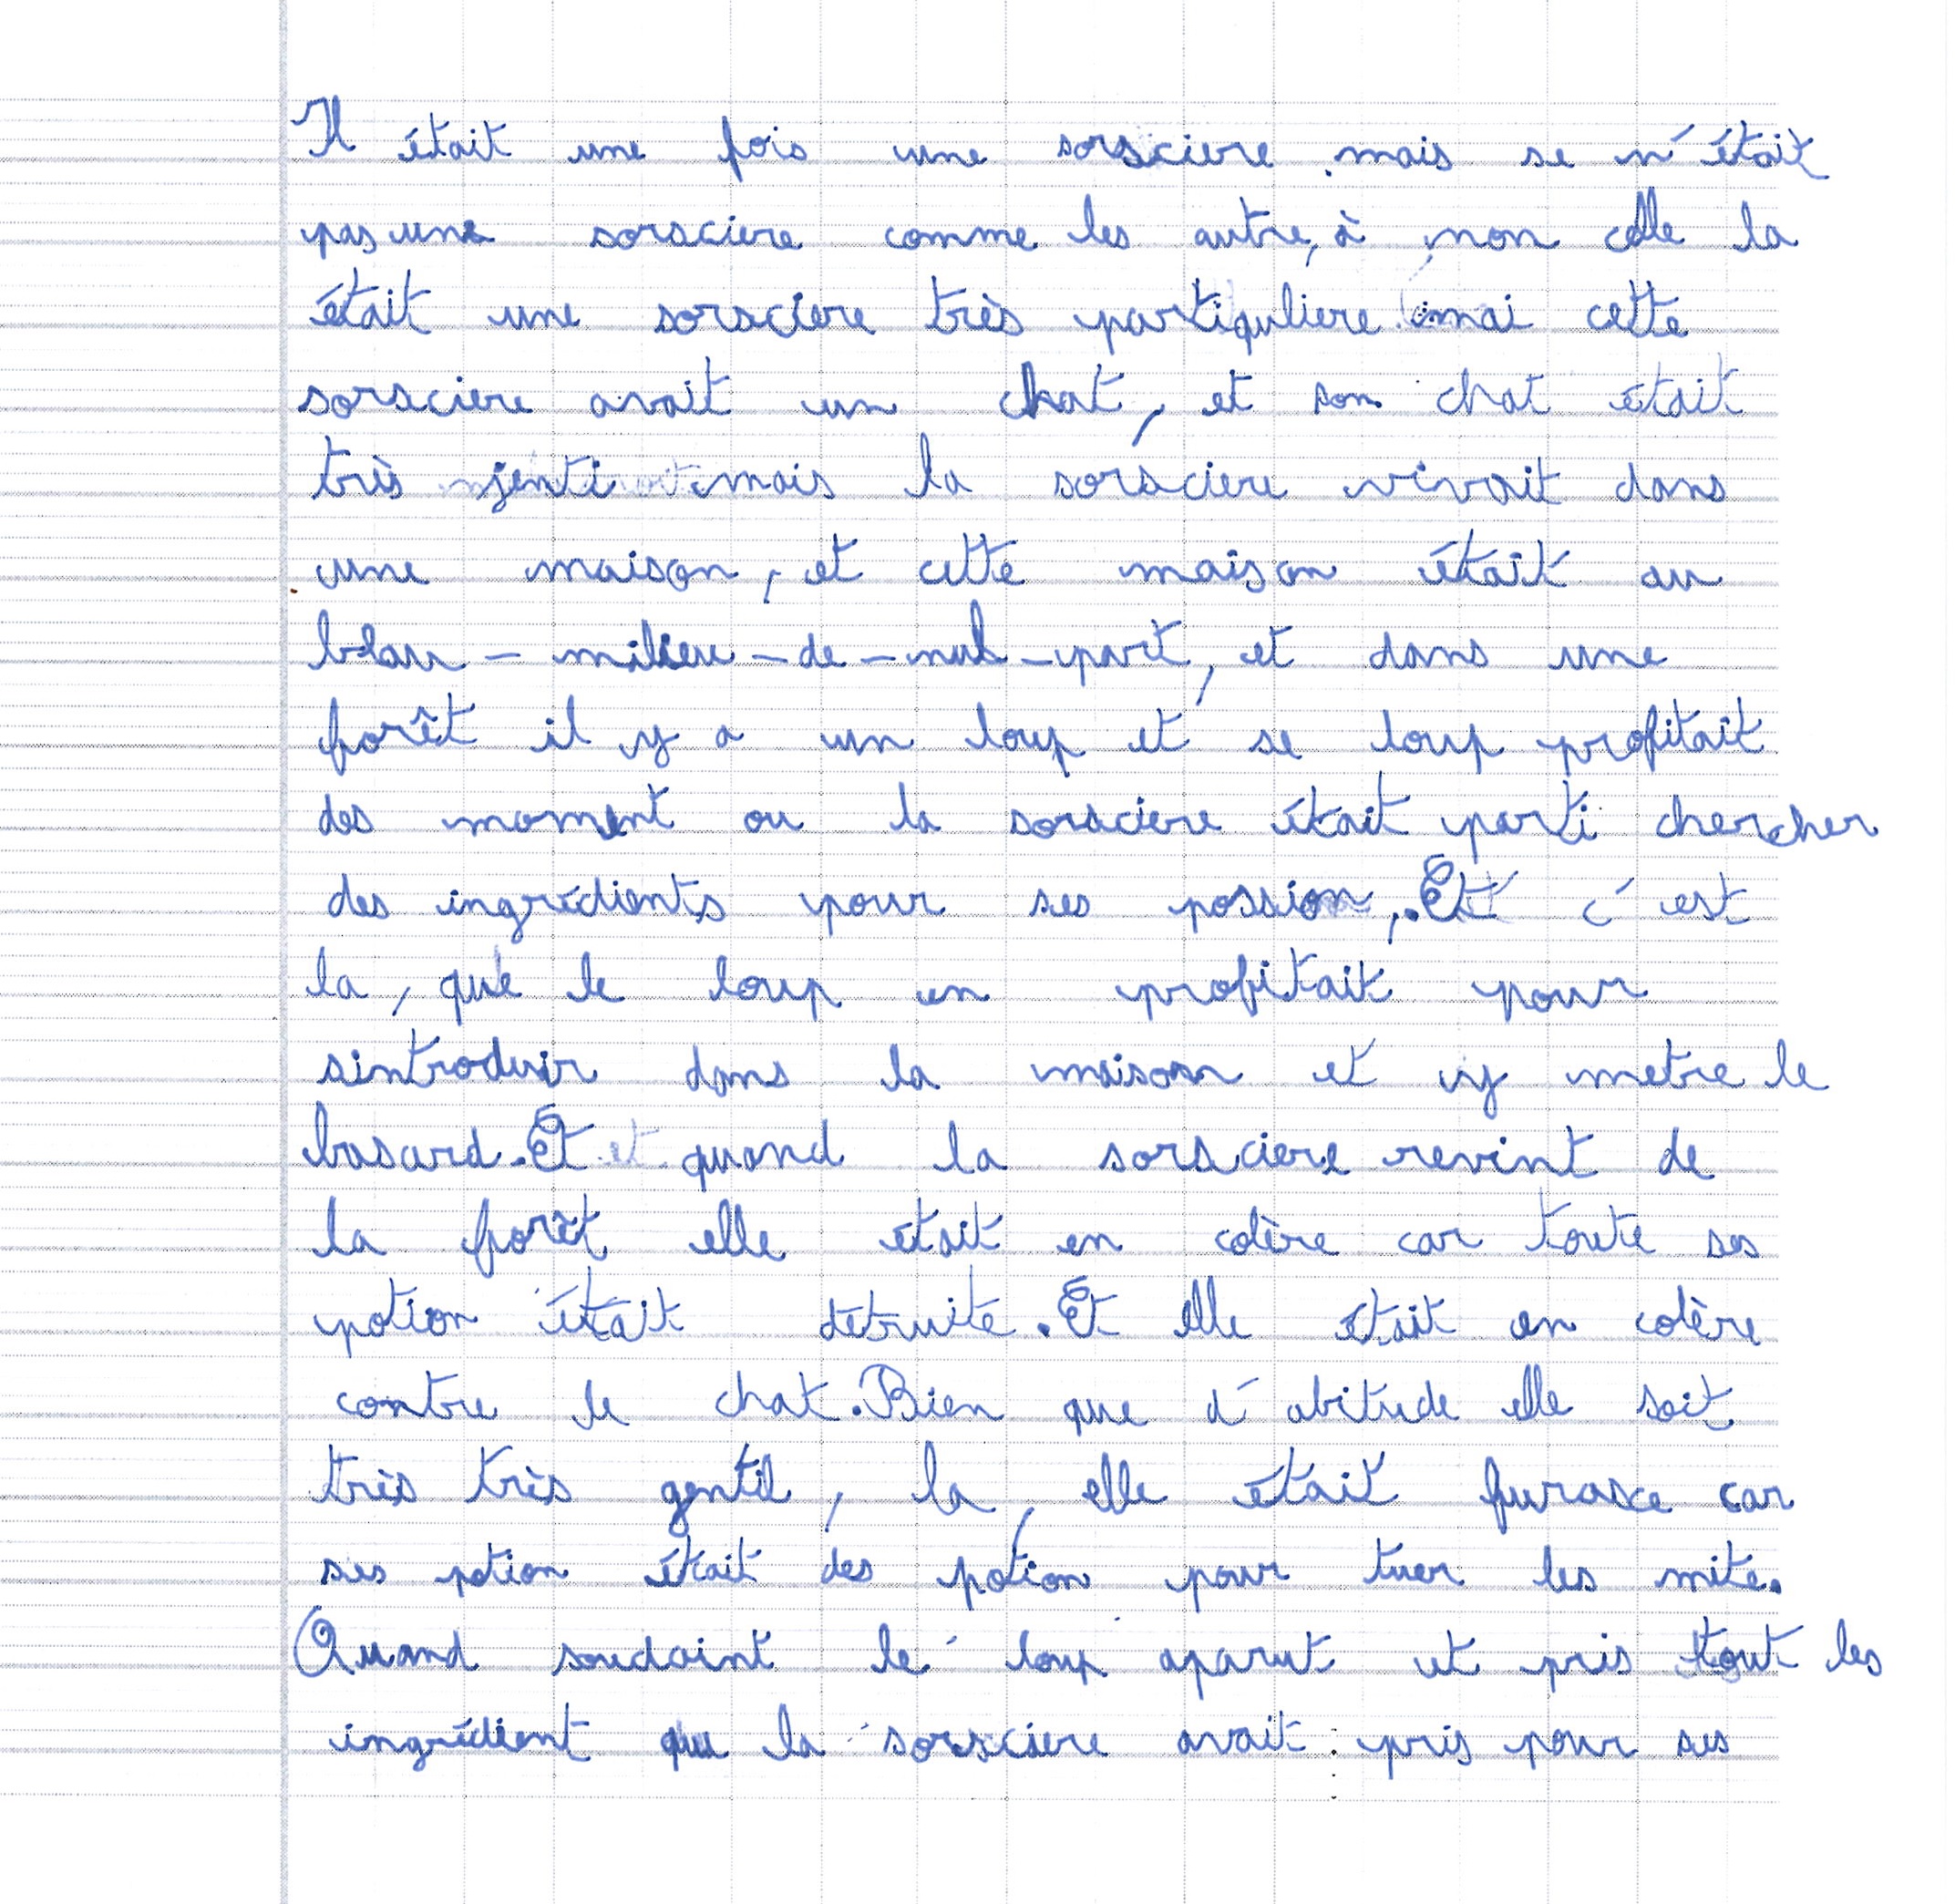 Il était une fois une sorsciere mais se n'était
pas une sorsciere comme les autre, à non celle la
était une sorsciere très partiquliere mai cette
sorsciere avait un chat, et son chat était
très jenti mais la sorsciere vivait dans
une maison, et cette maison était au
blau - milieu - de - nul - part, et dans une
forêt il y a un loup et se loup profitait
des moment ou la sorsciere était parti chercher
des ingrédients pour ses possion,. Et c'est
la, que le loup en profitait pour
sintroduir dans la maison et y metre le
basard. Et quand la sorsciere revint de
la forêt elle était en colère car toute ses
potion était détruite. Et elle était en colère
contre le chat. Bien que d'abitude elle soit
très très gentil, la, elle était furasce car
ses potion était des potion pour tuer les mite.
Quand soudaint le loup aparut et pris tout les
ingrédient que la sorsciere avait pris pour ses